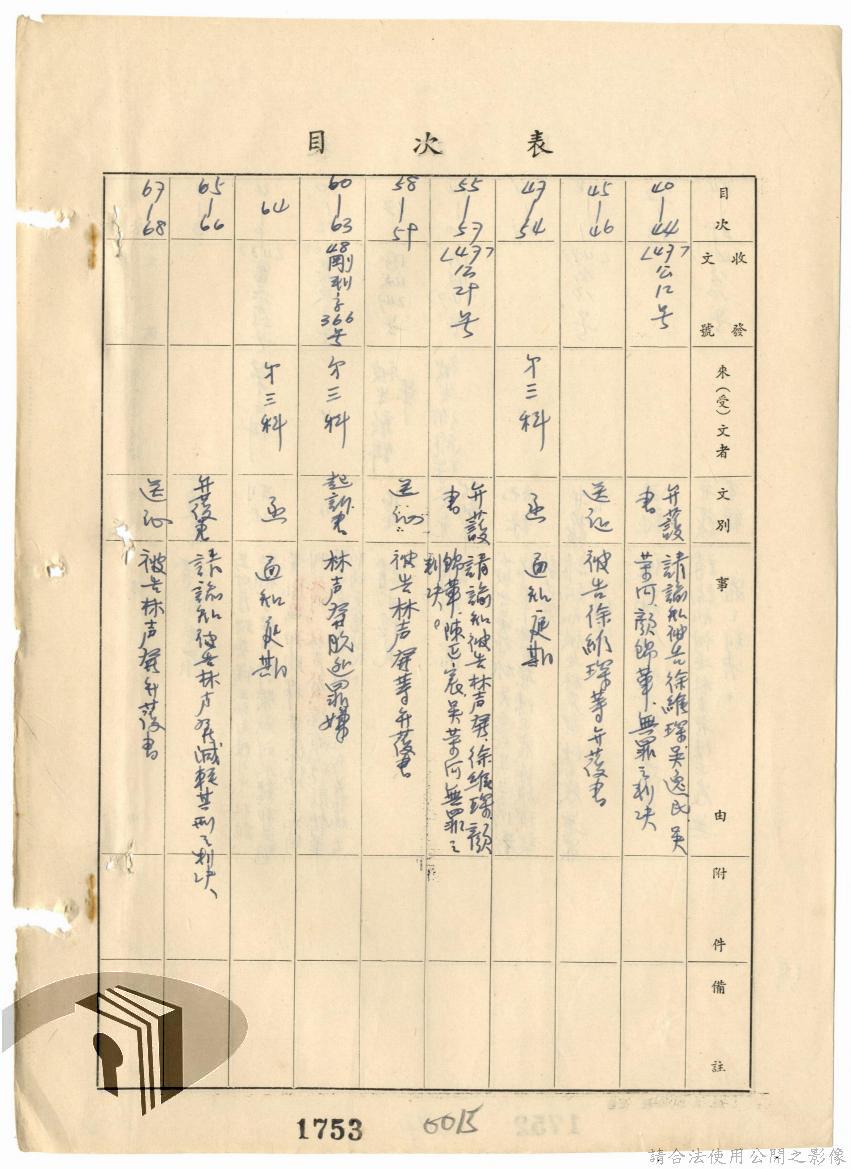 目次表
目次
收發文號
來(受)文者
文別
事由
附件
備註
40-44
(47)公12号
弁護書
請諭知被告徐維琛、吳逸民、吳
崇河、顏錦華、無罪之判决
45-46
送证
被告徐維琛等弁護書
47-54
第三科
函
通知更期
55-57
(47)公29号
弁護書
請諭知被告林声發、徐維琛、顏
錦華、陳正宸、吳崇河無罪之
判决。
58-59
送证
被告林声發等弁護書
60-63
48刚判字366号
第三科
起訴書
林声發脱逃罪嫌
64
第三科
函
通知更期
65-66
弁護書
請諭知被告林声發减輕其刑之判决、
67-68
送证
被告林声發弁護書
1753
0015
請合法使用公開之影像